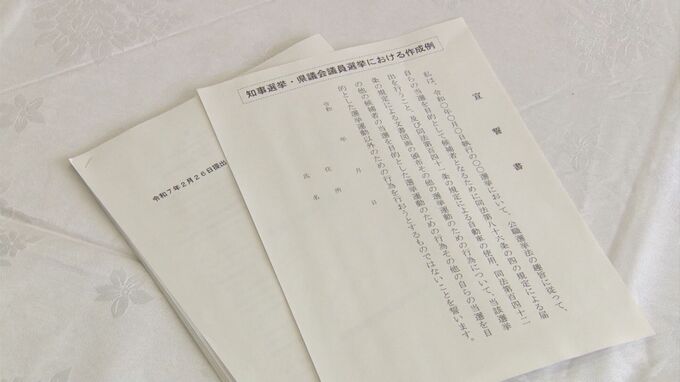 知事選挙・県議会議員選挙における作成例
宣誓書
私は、令和〇年〇月〇日執行の〇〇選挙において、公職選挙法の趣旨に従って、
自らの当選を目的として候補者となるために同法第八十六条の四の規定による届
出を行うこと、及び同法第百四十一条の規定による自動車の使用、同法第百四十二
条の規定による文書図画の頒布その他の選挙運動のための行為について、当該選挙
の他の候補者の当選を目的とした選挙運動のための行為その他の自らの当選を目
的とした選挙運動以外のための行為を行おうとするものではないことを誓います。
令和 年 月 日
住所
氏名
令和7年2月26日提出